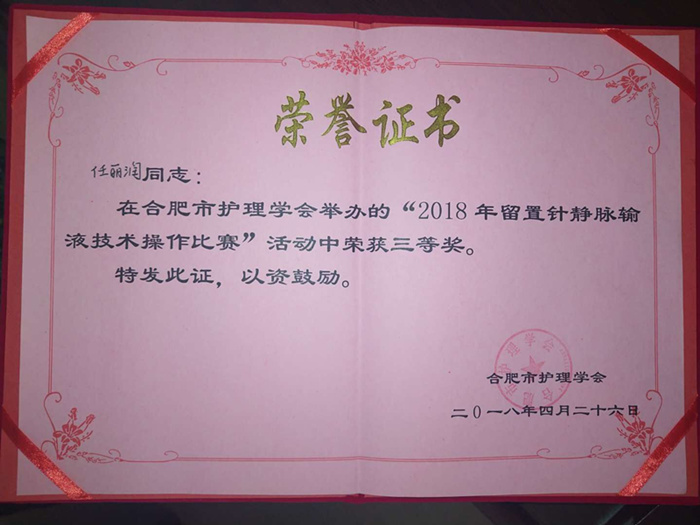 荣誉证书
任丽润同志：
在合肥市护理学会举办的“2018年留置针静脉输
液技术操作比赛”活动中荣获三等奖。
特发此证，以资鼓励。
合肥市护理学会
合肥市护理学会
二0一八年四月二十六日